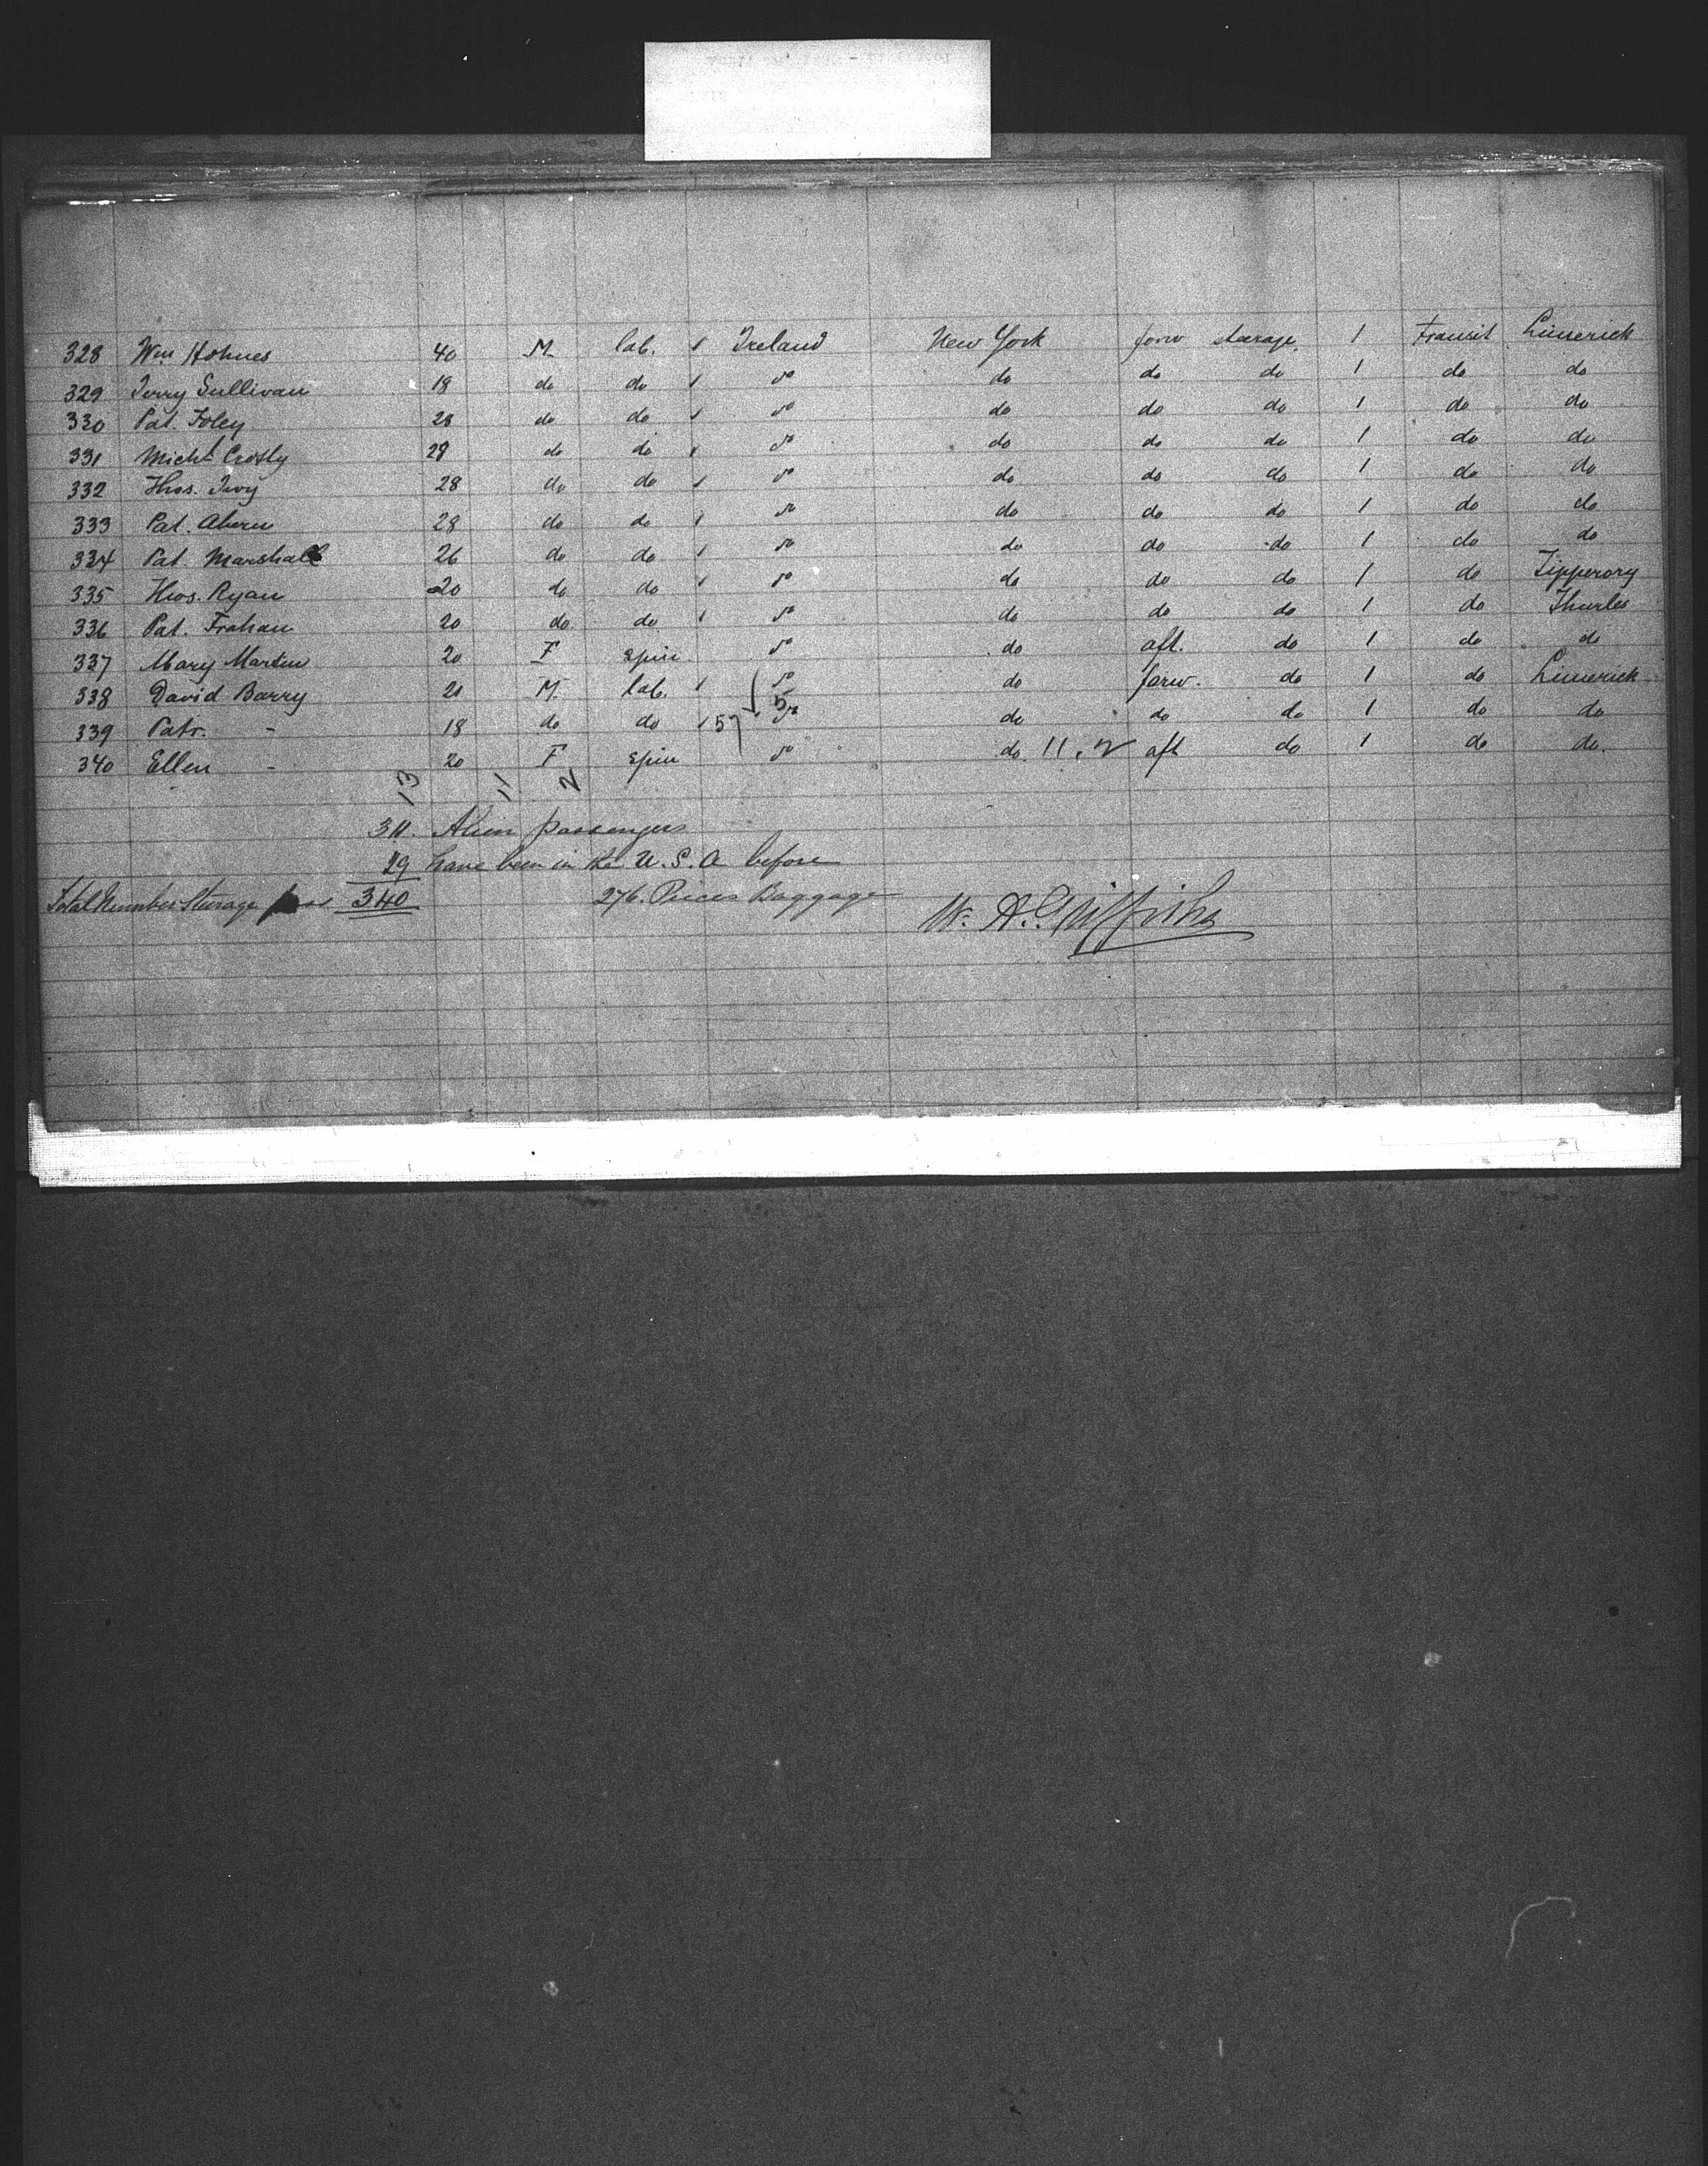 328 Wm Holmes 40 M. lab. 1 Ireland New York forw steerage. 1 transit Limerick
329 Jerry Sullivan 18 do do 1 do do do do 1 do do
330 Pat. Foley 28 do do 1 do do do do 1 do do
331 Michl Crosly 28 do do 1 do do do do 1 do do
332 Thos. Ivy 28 do do 1 do do do do 1 do do
333 Pat. Ahern 28 do do 1 do do do do 1 do do
334 Pat. Marshall 26 do do 1 do do do do 1 do do
335 Thos. Ryan 20 do do 1 do do do do 1 do Tipperory
336 Pat. Frahan 20 do do 1 do do do do 1 do Thurles
337 Mary Martin 20 F spin do do aft. do 1 do do
338 David Barry 21 M. lab. 1 do do forw. do 1 do Limerick
339 Patr. - 18 do do 1 57 5 do do do do 1 do do
340 Ellen - 20 F spin do do. 11, 2 aft do 1 do do.
13 11 2
311. Alien passengers
29 have been in the U.S.A before
Total Number Steerage pas 340 276. Pieces Baggage W. A. Griffiths